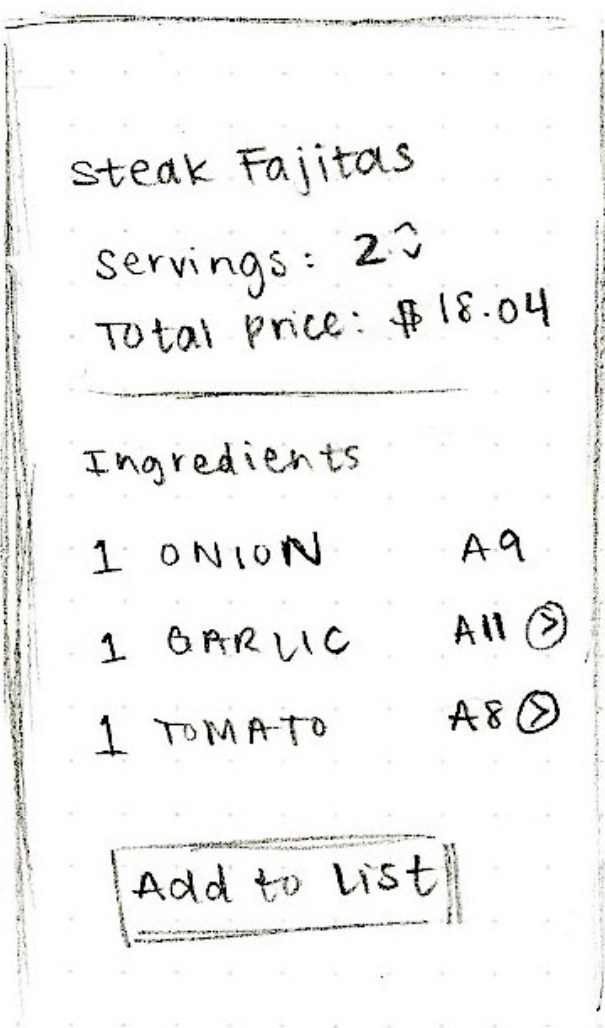 Steak Fajitas
Servings: 2
Total price: $18.04
Ingredients
1 ONION A9
1 GARLIC A11 >
1 TOMATO A8 >
Add to List